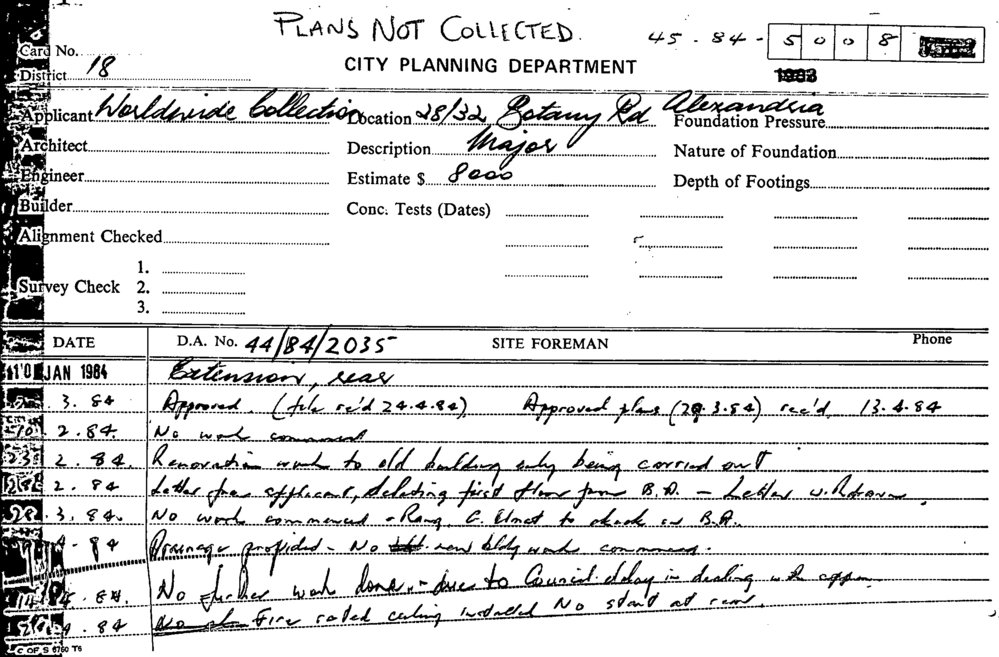 PLANS NOT COLLECTED. 45 . 84 - 5 0 0 8
Card No.
District 18 CITY PLANNING DEPARTMENT
Applicant Worldwide Collection Location 28/32 Botany Rd Alexandria
Foundation Pressure
Architect Description Major Nature of Foundation
Engineer Estimate $ 8000 Depth of Footings
Builder Conc. Tests (Dates)
Alignment Checked
1.
Survey Check 2.
3.
DATE D.A. No. 44/84/2035 SITE FOREMAN Phone
10 JAN 1984 Extension, rear
3. 84 Approved. (file re'd 24.4.84) Approved plans (29.3.84) rec'd. 13.4.84
2.84. No work commenced
23 2.84. Renovation work to old building only being carried out
28 2. 84 Letter from applicant, deleting first floor from B.A. - Letter withdrawn.
28. 3. 84. No work commenced - Rang to check on B.A.
4 - 84 Drainage provided - No new bldg work commenced.
84. No further work done, - due to Council delay in dealing with
4. 84 Fire rated ceiling installed No start at rear.
C OF S 6760 T6